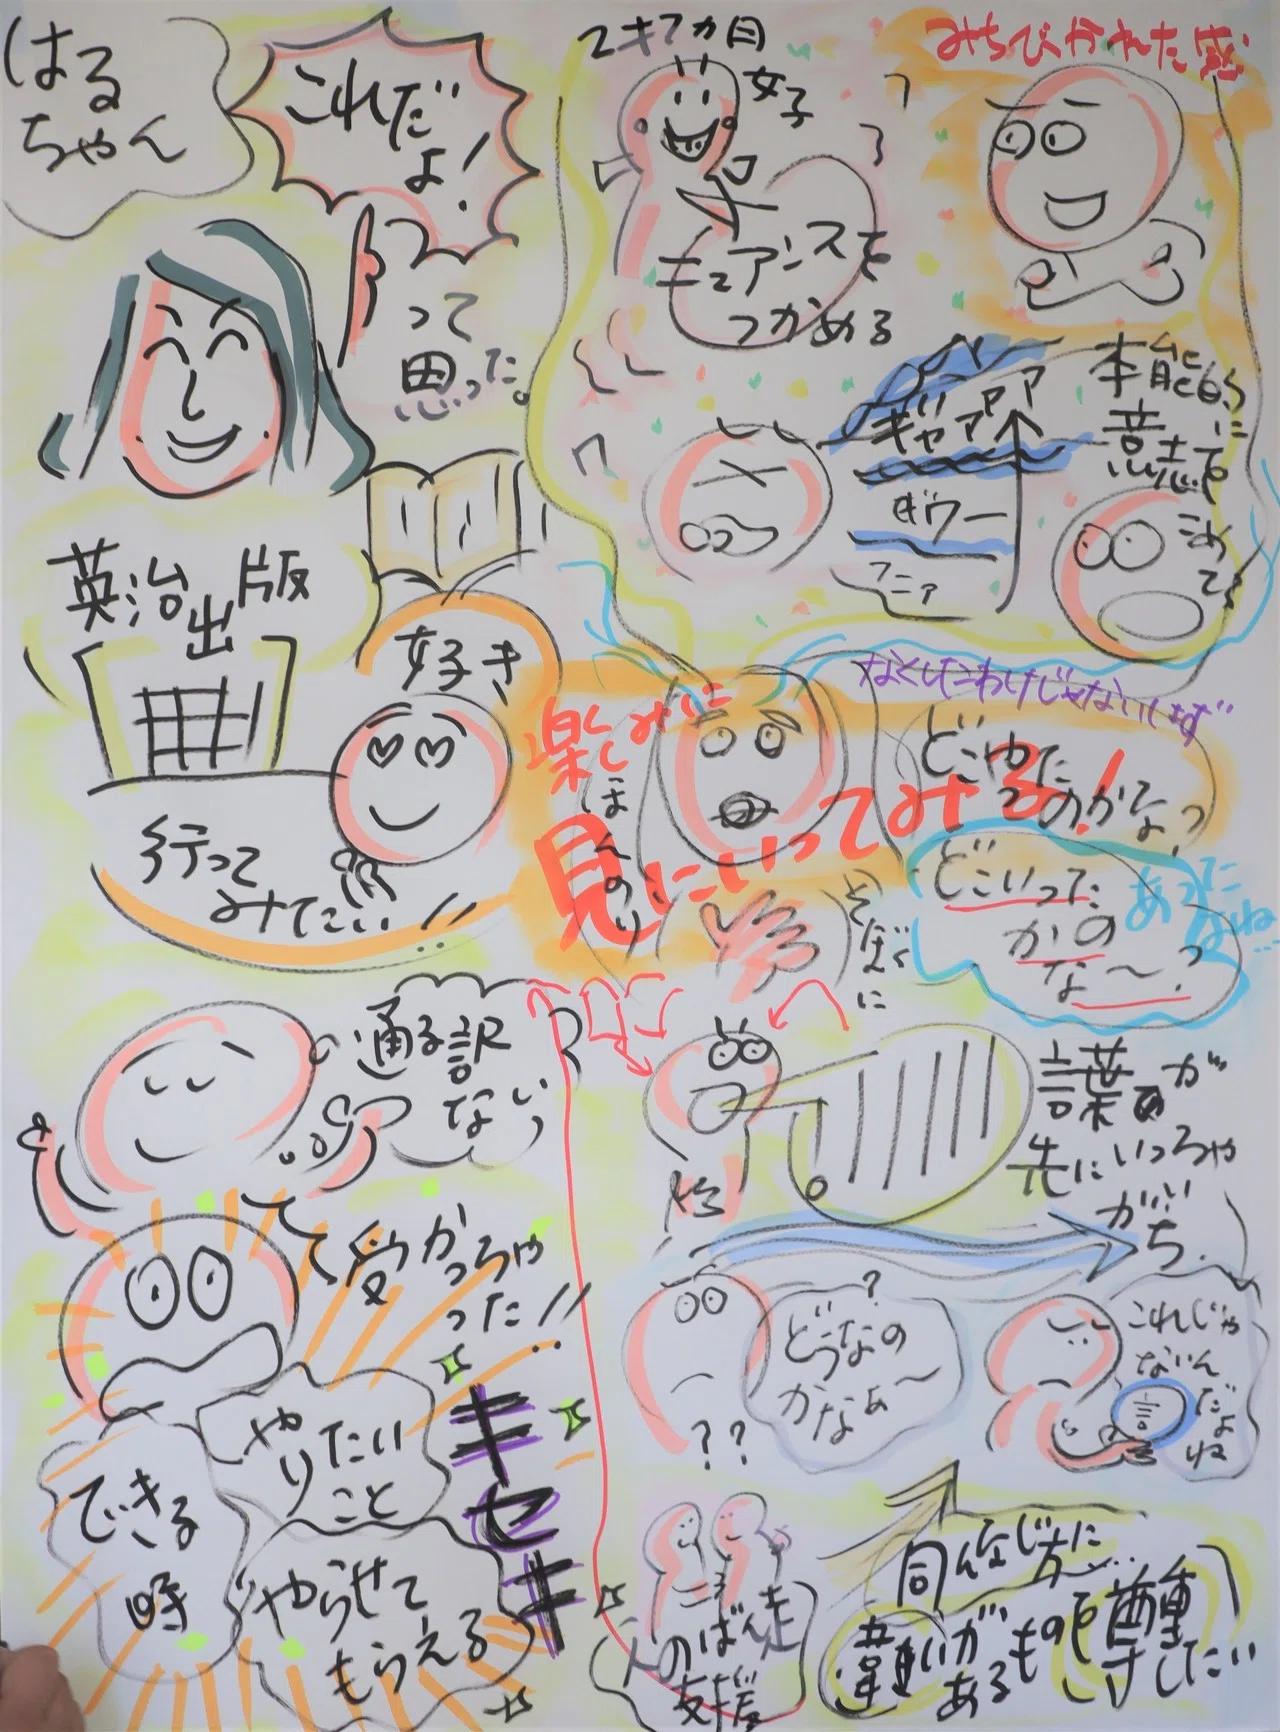 はる
ちゃん
これだ
よ!
って
思った。
英治出版
好き
行って
みたい!!
通る訳
ない
受かっちゃ
った!!
やりたい
こと
できる
時
やらせて
もらえる
キセキ
2才7ヵ月
女子
ニュアンスを
つかめる
みちびかれた感
本能的に
意志を
こめて
ギャアアア
ギウー
フニァ
なくしたわけじゃないしはず
楽しみに
見にいってみる!
ほんのり
どこゆった
のかなっ
どこいった
かの
な〜っ
あった
よね…
言葉が
先にいっちゃ
がち.
どうなの
かなぁ〜
?
??
これじゃ
ないん
だよ
ね
言
人のばん走
支援
同んなじ方に…
違いが
あるものを
尊重
したい